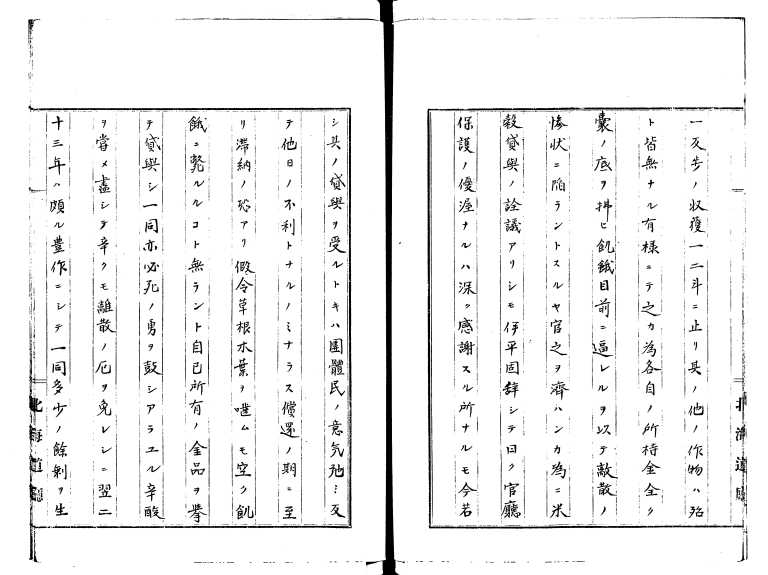 一反歩ノ收獲一二斗ニ止リ其ノ他ノ作物ハ殆
ト皆無ナル有様ニテ之カ為各自ノ所持金全ク
嚢ノ底ヲ拂ヒ飢餓目前ニ逼レルヲ以テ離散ノ
惨状ニ陥ラントスルヤ官之ヲ濟ハンカ為ニ米
穀貸與ノ詮議アリシモ伊平固辞シテ曰ク官廳
保護ノ優渥ナルハ深ク感謝スル所ナルモ今若
北海道廳
シ其ノ貸與ヲ受ルトキハ團體民ノ意気弛ミ反
テ他日ノ不利トナルノミナラス償還ノ期ニ至
リ滞納ノ恐アリ假令草根木葉ヲ噬ムモ空ク飢
餓ニ斃ルルコト無ラント自己所有ノ金品ヲ擧
テ貸與シ一同亦必死ノ勇ヲ鼓シアラユル辛酸
ヲ嘗メ盡シテ辛クモ離散ノ厄ヲ免レシニ翌二
十三年ハ頗ル豊作ニシテ一同多少ノ餘剰ヲ生
北海道廳